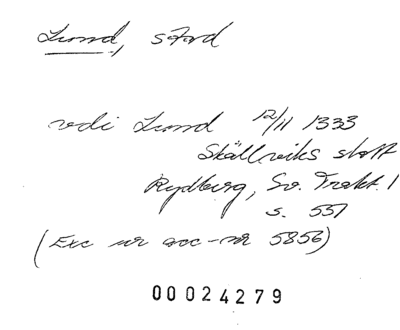 Lund, stad
vdi Lund 12/11 1333
Skällviks slott
Rydberg, Sv. Trakt. 1
s. 551
(Exc ur acc-nr 5856)
00024279